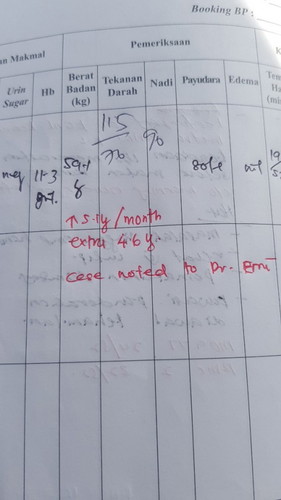 Booking BP :
an Makmal
Pemeriksaan
Urin Sugar
Hb
Berat Badan (kg)
Tekanan Darah
Nadi
Payudara
Edema
115
70
neg
11.3
59.1
soft
nil
↑ 5.1g/month
extra 4.6 g.
case noted to Dr. Erni